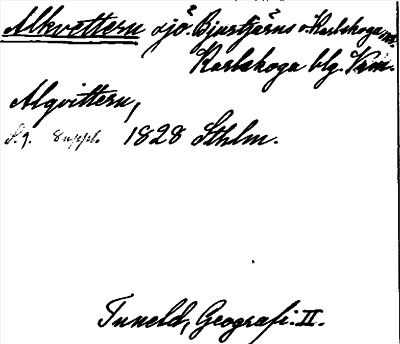 Alkvettern sjö. Bjurtjärns o. Karlskoga snr.
Karlskoga blg. Vrm.
Alqvittern,
S. 9. Suppl. 1828 Sthlm.
Tuneld, Geografi. II.